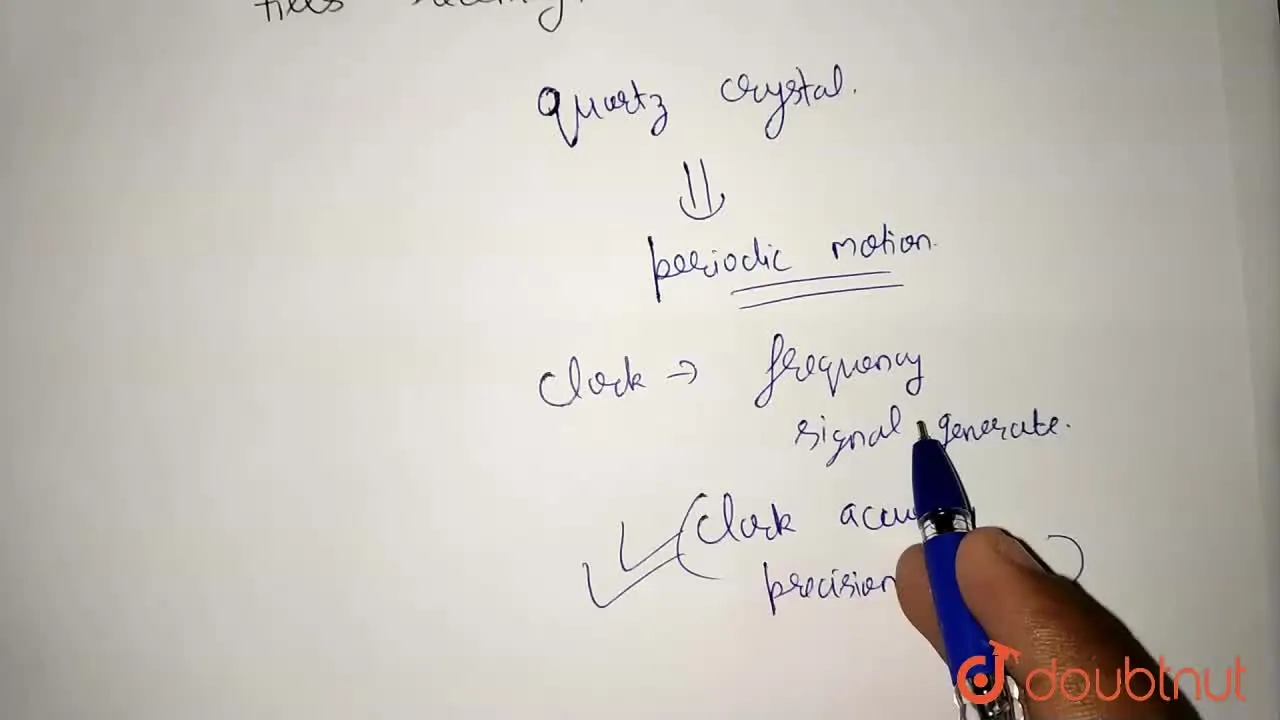 Quartz crystal.
periodic motion.
Clock → frequency
signal generate.
(Clock
precision )
doubtnut